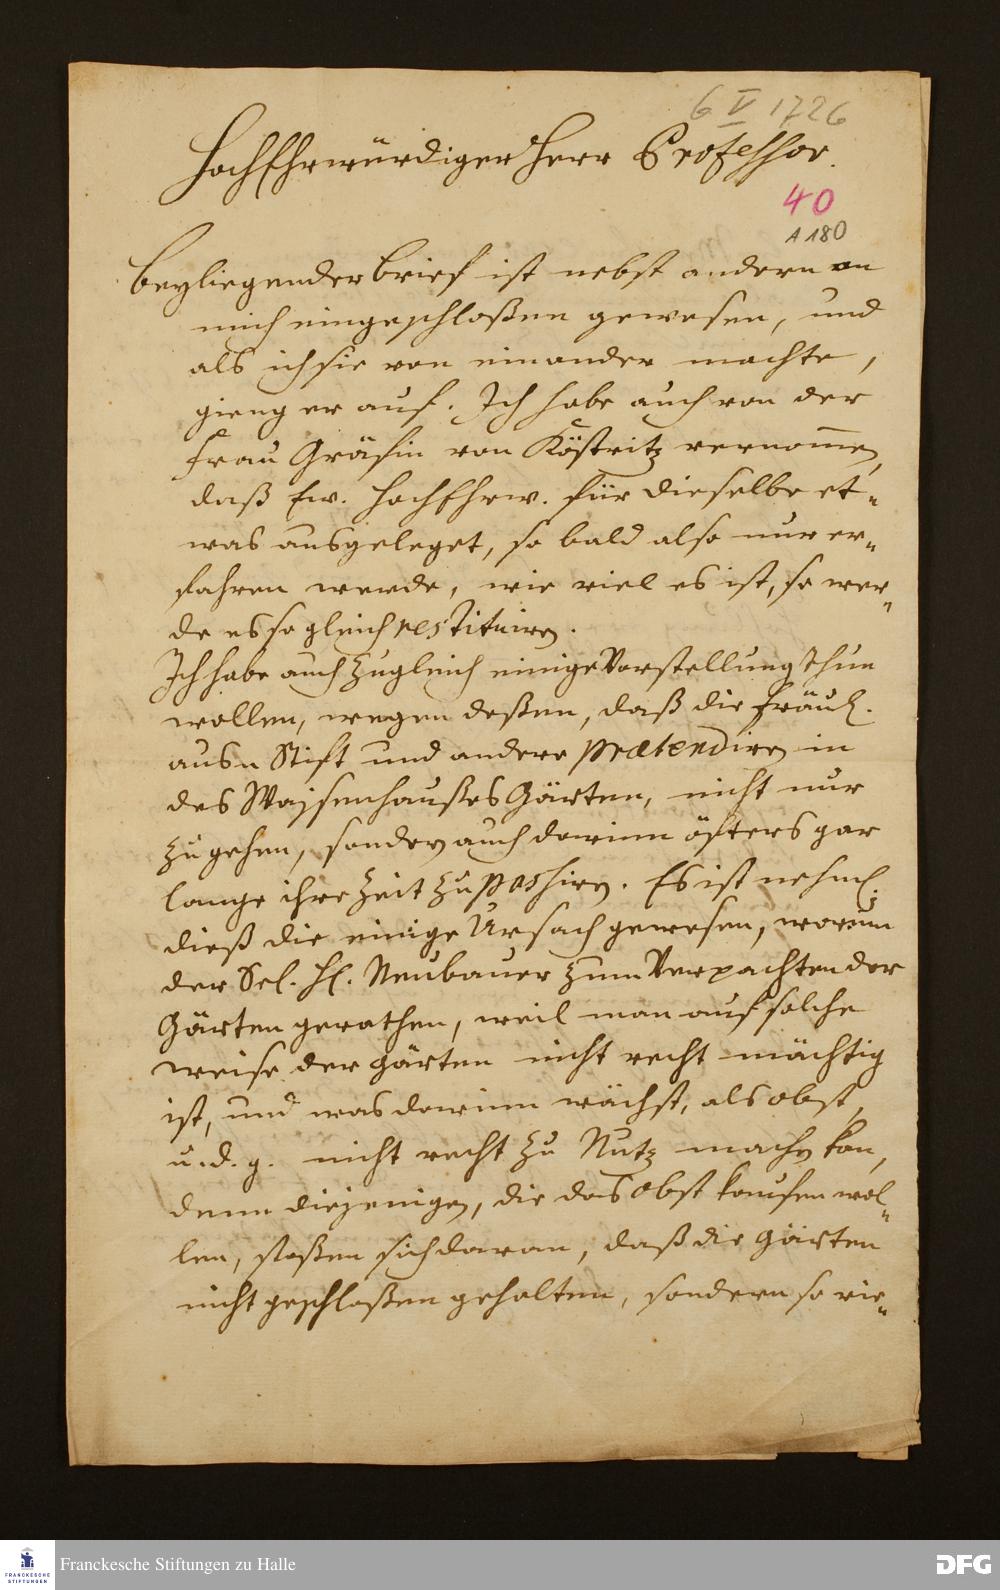 6 V 1726
HochEhrwürdiger Herr Professor.
40
A 180
Beyliegender brief ist nebst andern an
mich eingeschloßen gewesen, und
als ich sie von einander machte,
gieng er auf. Ich habe auch von der
Frau Gräfin von Köstritz vernom̅en,
daß Ew. HochEhrw. für dieselbe et-
was ausgeleget, so bald also nur er-
fahren werde, wie viel es ist, so wer-
de es so gleich restituiren.
Ich habe auch zugleich einige Vorstellung thun
wollen, wegen deßen, daß die Fräul.
aus n Stift und andere prætendiren in
des Waysenhaußes Gärten, nicht nur
zu gehen, sondern auch darinn öfters gar
lange ihre Zeit zu passiren. Es ist nehml.
dieß die einige Ursach gewesen, warum
der Sel. H. Neubauer zum Verpachten der
Gärten gerathen, weil man auf solche
weise der gärten nicht recht mächtig
ist, und was darinn wächst, als obst,
u. d. g. nicht recht zu Nutz machen kan,
denn diejenigen, die das obst kaufen wol-
len, stoßen sich daran, daß die gärten
nicht geschloßen gehalten, sondern so vie-
FRANCKESCHE STIFTUNGEN
Franckesche Stiftungen zu Halle
DFG